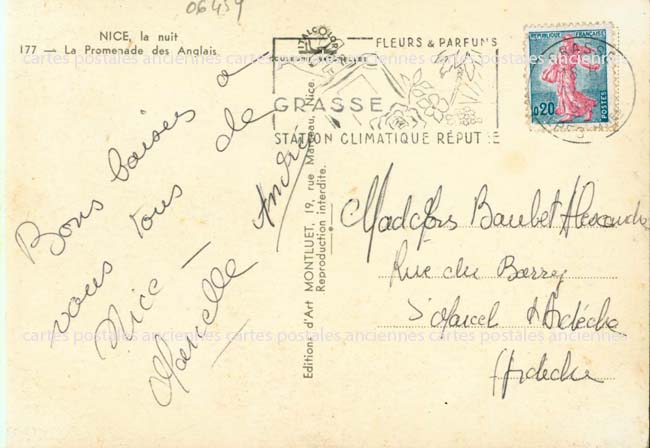 06459
NICE, la nuit
177 — La Promenade des Anglais
Bons baisers à
vous tous de
Nice —
André
FLEURS & PARFUMS
GRASSE
STATION CLIMATIQUE RÉPUTÉE
REPUBLIQUE FRANÇAISE
0,20
POSTES
GRASSE
Editions d'Art MONTLUET, 19, rue Marceau, Nice.
Reproduction interdite.
Baubet Alexandre
Rue du Barry
St Marcel d'Ardèche
Ardèche
cartes postales anciennes cartes postales anciennes cartes postales anciennes
cartes postales anciennes cartes postales anciennes cartes postales anciennes